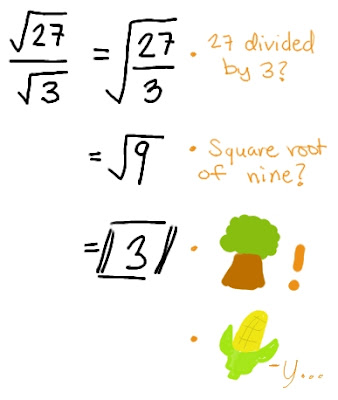 √27/√3 = √(27/3) • 27 divided
by 3?
= √9 • Square root
of nine?
= 3 • !
• -y...